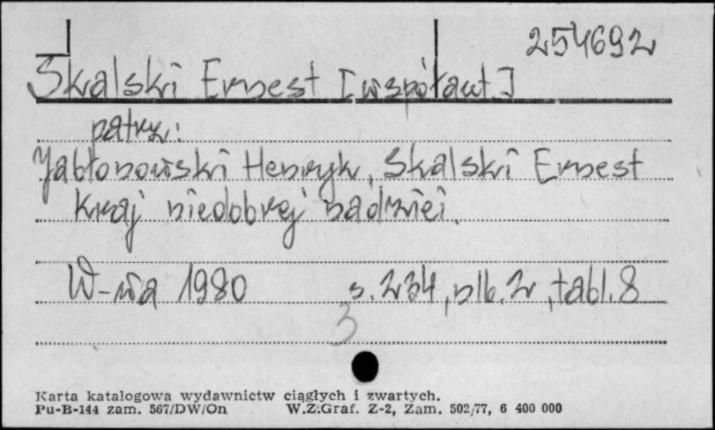 254692
Skalski Ernest [współaut.]
patrz:
Jabłonowski Henryk, Skalski Ernest
Kraj niedobrej nadziei.
W-wa 1980 s. 234, nlb. 2, tabl. 8
3
Karta katalogowa wydawnictw ciągłych i zwartych.
Pu-B-144 zam. 567/DW/On W.Z.Graf. Z-2, Zam. 502/77, 6 400 000